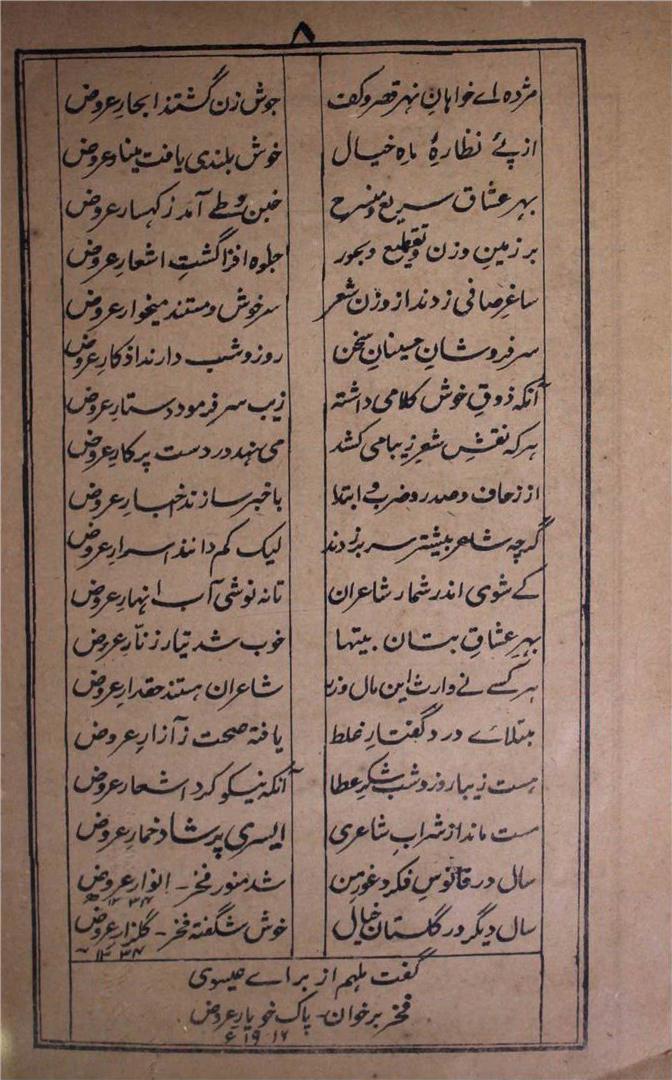 ۸
مژدہ اے خواہانِ نہر قصر و کف جوش زن گشتند ابحارِ عروض
از پئے نظارۂ ماہِ خیال خوش بلندی یافت مینارِ عروض
بہرِ عشاق سریع و منسرح خبن و طے آمد ز کہسارِ عروض
بر زمینِ وزن و تقطیع و بحور جلوہ افزا گشت اشعارِ عروض
ساغرِ صافی زدند از وزنِ شعر سرخوش و مستند میخوارِ عروض
سرفروشانِ حسینانِ سخن روز و شب دارند اذکارِ عروض
آنکہ ذوقِ خوش کلامی داشتہ زیب سر فرمود دستارِ عروض
ہر کہ نقشِ شعرِ زیبا می کشد می نہد در دست پرکارِ عروض
از زحاف و صدر و ضرب و ابتدا باخبر سازند اخبارِ عروض
گرچہ شاعر بیشتر سر بر زدند لیک کم دانند اسرارِ عروض
کے شوی اندر شمارِ شاعران تا نہ نوشی آب انہارِ عروض
بہرِ عشاقِ بتان بیتہا خوب شد تیار زنّارِ عروض
ہر کسے نے وارث این مال و زر شاعران ہستند حقدارِ عروض
مبتلاے درد گفتارِ غلط یافتہ صحت ز آزارِ عروض
ہست زیبا روز و شب شکرِ عطا آنکہ نیکو کرد اشعارِ عروض
مست ماند از شرابِ شاعری ایسری پرشاد خمارِ عروض
سال در فانوسِ فکر و غورِ من شد منور فخر۔ انوارِ عروض
۱۳۳۴
سال دیگر در گلستانِ خیال خوش شگفتہ فخر۔ گلزارِ عروض
۱۳۳۴
گفت ملہم از براے عیسوی
فخر برخوان۔ پاک خو یارِ عروض
۱۹۱۶ء